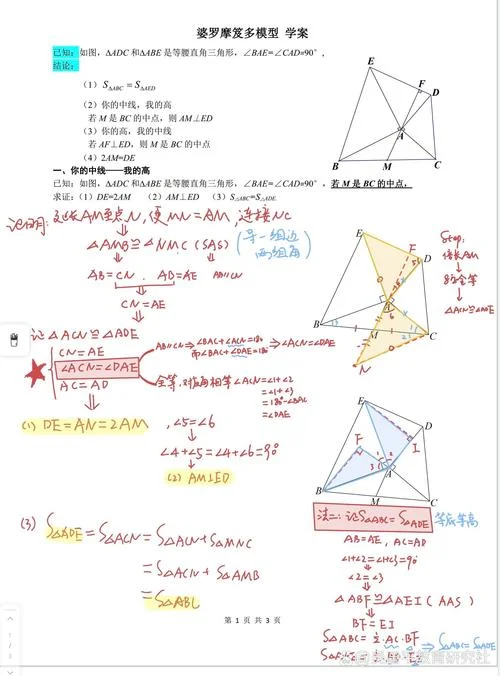 婆罗摩笈多模型 学案
已知:如图,ΔADC 和ΔABE 是等腰直角三角形,∠BAE=∠CAD=90°,
结论:
(1)S△ABC=S△AED
(2)你的中线,我的高
若 M 是 BC 的中点,则 AM⊥ED
(3)你的高,我的中线
若 AF⊥ED,则 M 是 BC 的中点
(4)2AM=DE
E
F
D
A
B
M
C
一、你的中线——我的高
已知:如图,ΔADC 和ΔABE 是等腰直角三角形,∠BAE=∠CAD=90°,若 M 是 BC 的中点,
求证:(1)DE=2AM (2)AM⊥ED (3)S△ABC=S△ADE
证明:延长AM至点N,使MN=AM,连接NC
△AMB≌△NMC(SAS)
(导一组边
两组角)
AB=CN、AB=AE AB∥CN
CN=AE
证△ACN≌△ADE
CN=AE
∠ACN=∠DAE
AC=AD
AB∥CN⇒∠BAC+∠ACN=180°
而∠BAC+∠DAE=180°
⇒∠ACN=∠DAE
全等,对应角相等∠ACN=∠1+∠2
=∠1+∠3
=180°-∠BAC
=∠DAE
(1) DE=AN=2AM
,∠5=∠6
∠4+∠5=∠4+∠6=90°
(2) AM⊥ED
(3) S△ADE=S△ACN=S△ACM+S△MNC
=S△ACM+S△AMB
=S△ABC
Step:
倍长AM
8字全等
△ACN≌△ADE
E
F
D
A
B
M
C
N
E
F
D
I
A
B
M
C
法二:证S△ABC=S△ADE
等底等高
AB=AE,AC=AD
∠1+∠2=∠1+∠3=90°
∠2=∠3
△ABF≌△AEI(AAS)
BF=EI
S△ABC=½·AC·BF
⇒S△ABC=S△ADE
第 1 页 共 3 页
1
/
3